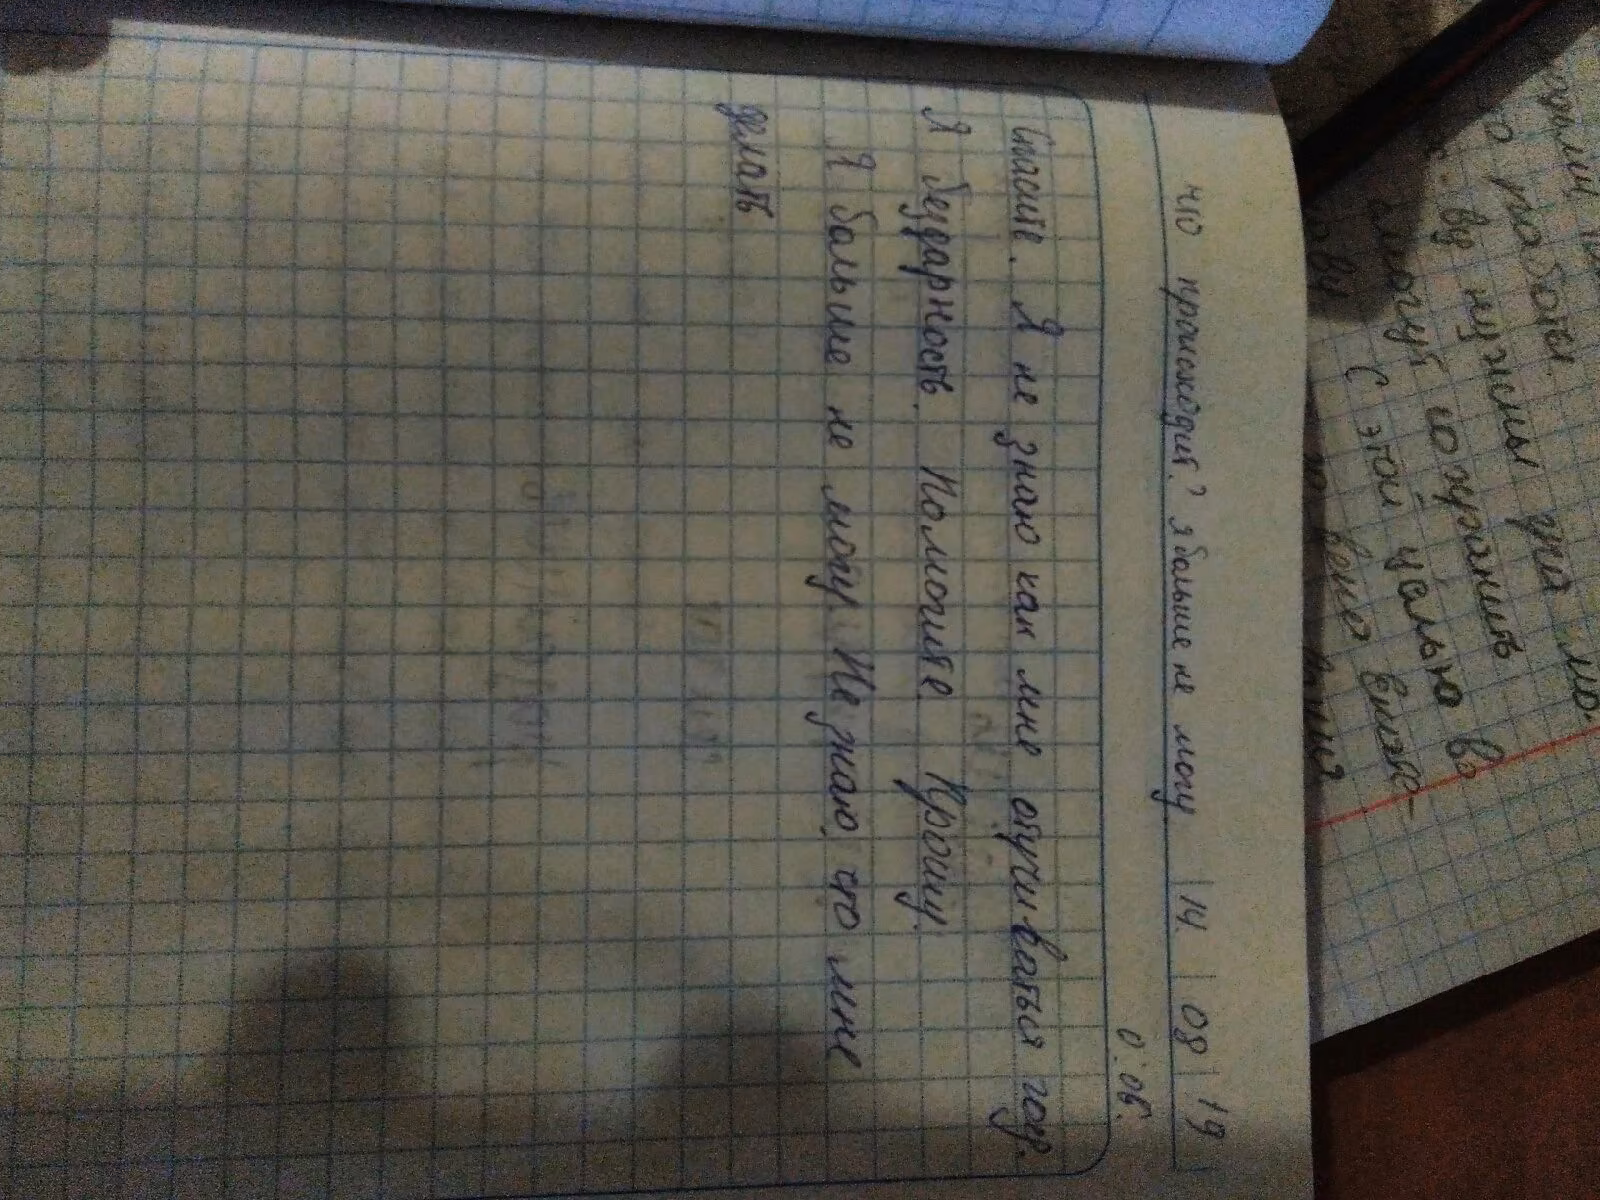 что происходит? я больше не могу 14 08 19
0:06.
Спасите. Я не знаю как мне отучи-ваться год.
Я бездарность. Помогите. Прошу.
Я больше не могу. Не знаю, что мне
делать
работы.
нужны
сохранить
с этой целью в